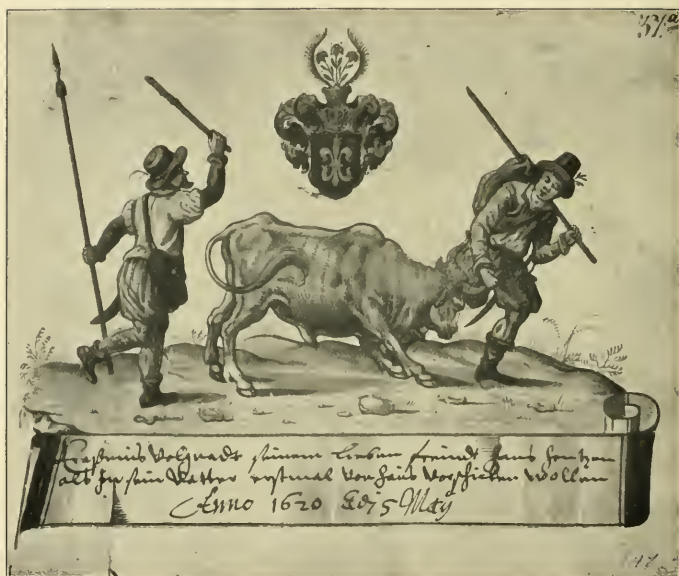 37.a
Erasmus Volgnadt seinem lieben freündt hans
als Ihn sein Vatter erstmal von haus verschicken wollen
Anno 1620 Adi 5 May